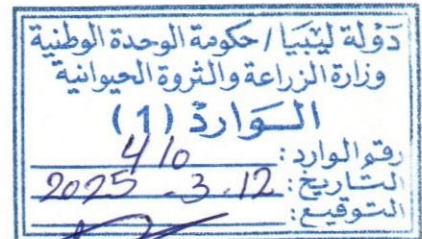 دولة ليبيا / حكومة الوحدة الوطنية
وزارة الزراعة والثروة الحيوانية
الـوارد (1)
رقم الوارد: 410
التاريخ: 2025-3-12
التوقيع: